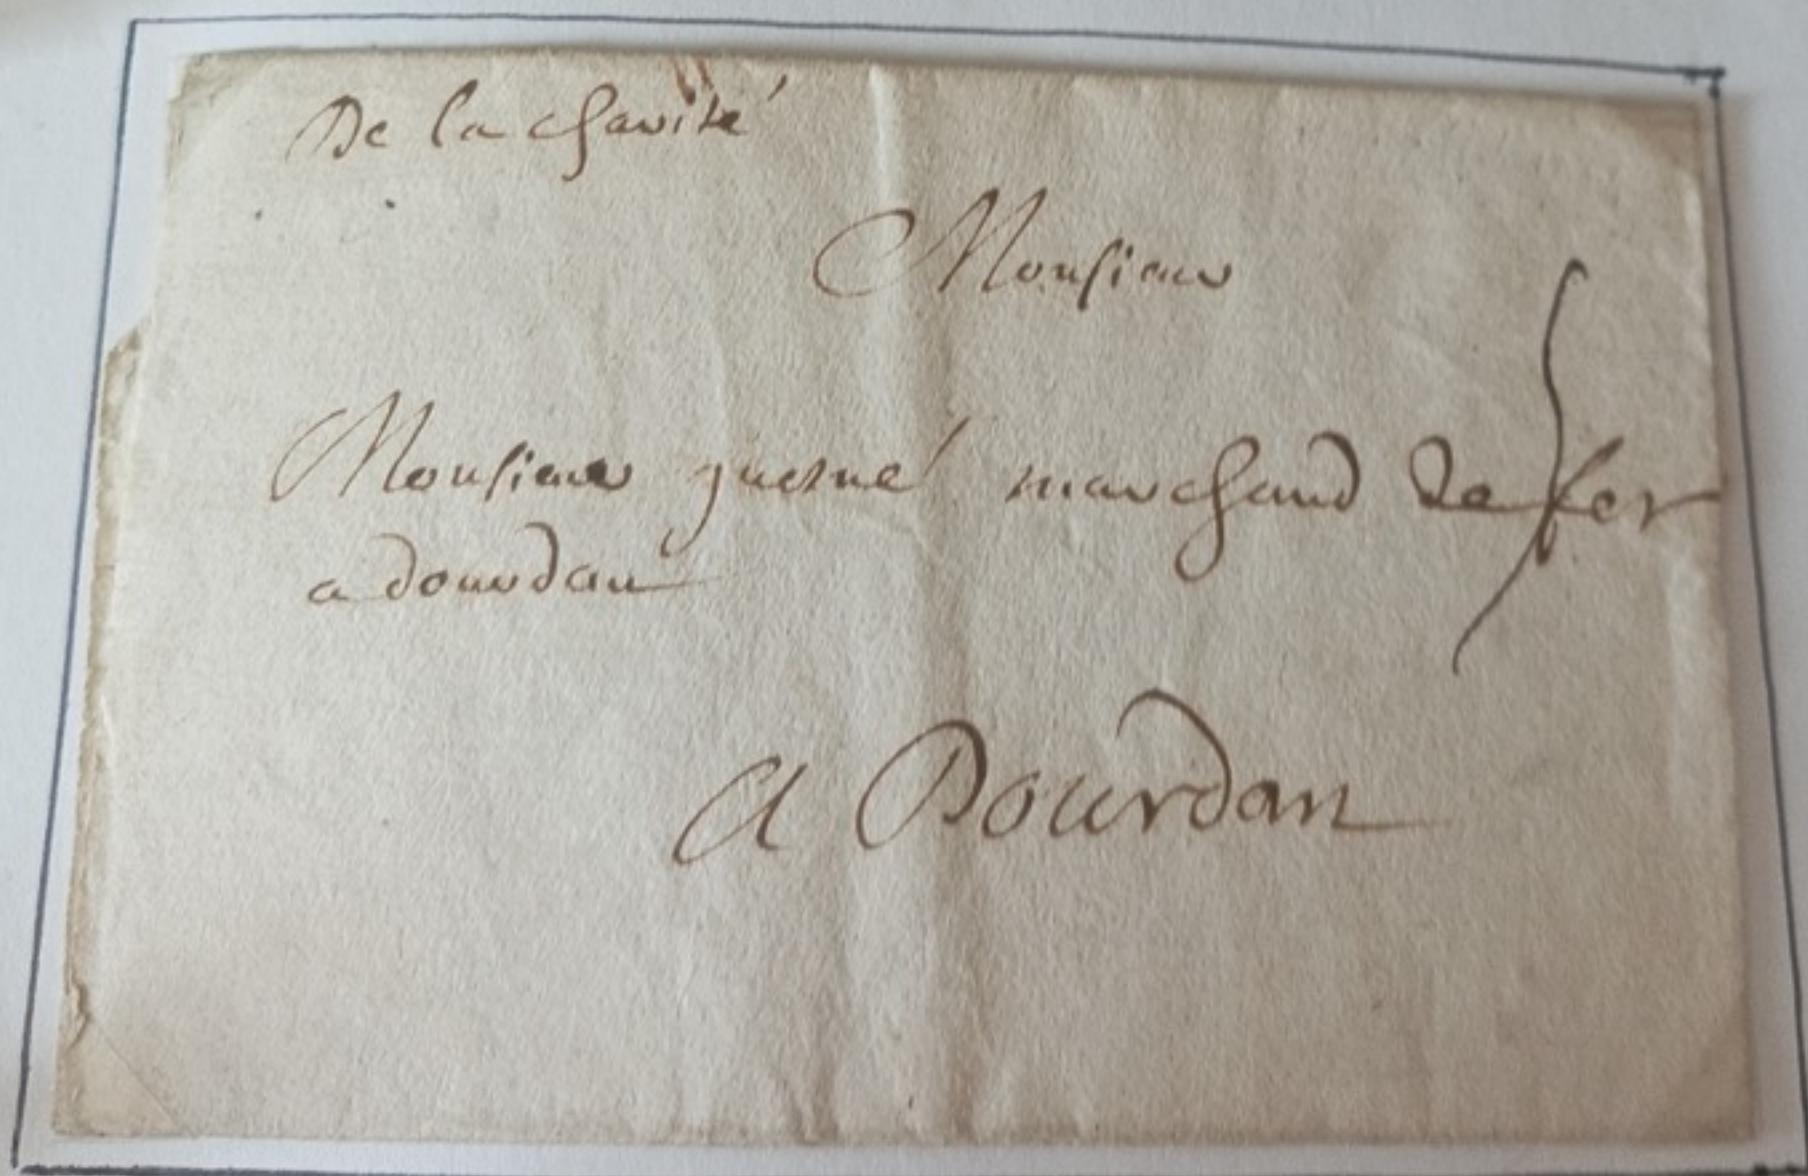 De la charité
Monsieur
Monsieur guesné marchand de fer
a dourdan
A Dourdan